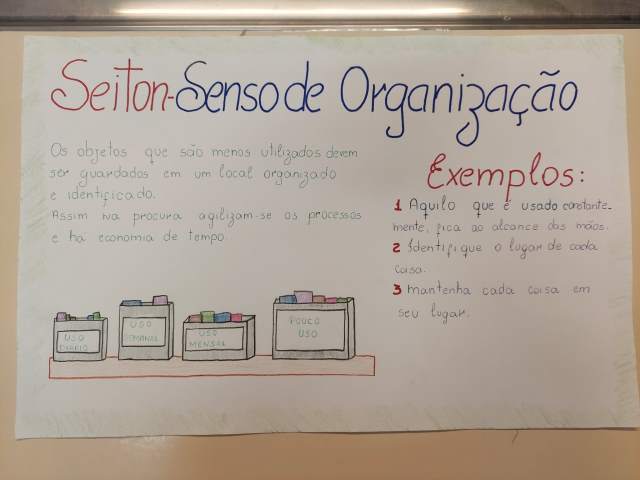 Seiton-Senso de Organização
Os objetos que são menos utilizados devem
ser guardados em um local organizado
e identificado.
Assim na procura agilizam-se os processos
e há economia de tempo.
Exemplos:
1 Aquilo que é usado constante-
mente, fica ao alcance das mãos.
2 Identifique o lugar de cada
coisa.
3 mantenha cada coisa em
seu lugar.
USO
DIÁRIO
USO
SEMANAL
USO
MENSAL
POUCO
USO